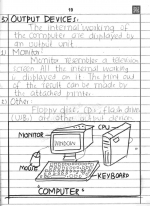 19
5) OUTPUT DEVICES:
The internal working of
the computer are displayed by
an output unit
1) Monitor:
Monitor resembles a television
screen. All the internal working
is displayed on it. The print out
of the result can be made by
the attached printer.
2) Other:
Floppy disk, CDs, flash drive
(USBs) are other output device.
MONITOR
CPU
WINDOW
MOUSE
KEYBOARD
"COMPUTER"